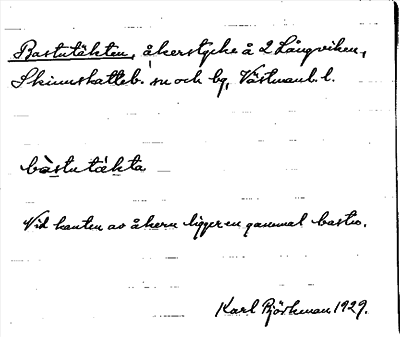 Bastutäkten, åkerstycke å 2 Långviken,
Skinnskatteb. sn och bg, Västmanl. l.
bàstutäkta
Vid kanten av åkern ligger en gammal bastu.
Karl Björkman 1929.